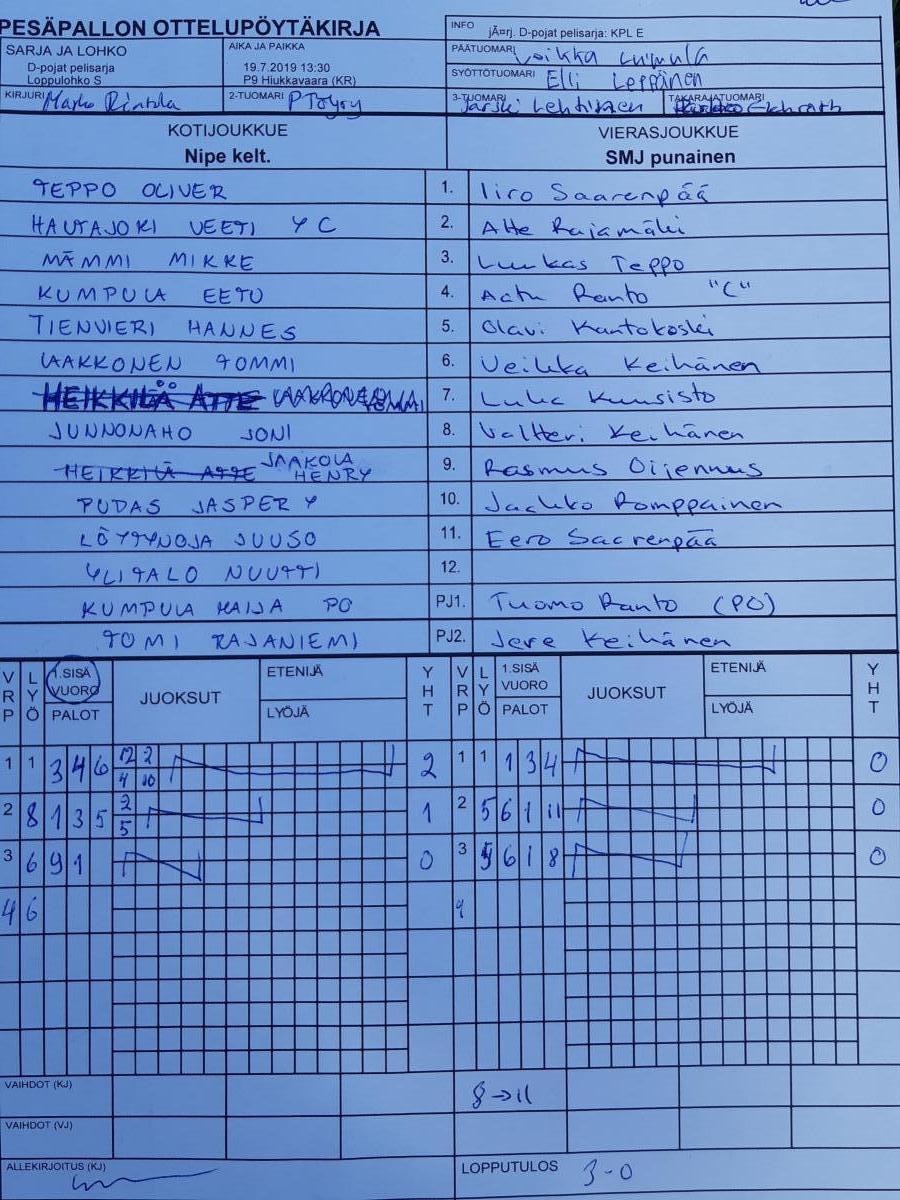 PESÄPALLON OTTELUPÖYTÄKIRJA
INFO jÃ¤rj. D-pojat pelisarja: KPL E
SARJA JA LOHKO
D-pojat pelisarja
Loppulohko S
AIKA JA PAIKKA
19.7.2019 13:30
P9 Hiukkavaara (KR)
PÄÄTUOMARI
SYÖTTÖTUOMARI Elli Leppänen
KIRJURI Marko Rintala
2-TUOMARI
3-TUOMARI Jarski Lehtinen
TAKARAJATUOMARI
KOTIJOUKKUE
Nipe kelt.
VIERASJOUKKUE
SMJ punainen
TEPPO OLIVER 1. Iiro Saarenpää
HAUTAJOKI VEETI Y C 2. Atte Rajamäki
MÄMMI MIKKE 3. Luukas Teppo
KUMPULA EETU 4. Aatu Ranto "C"
TIENVIERI HANNES 5. Olavi Kantokoski
VAAKKONEN TOMMI 6. Veikka Keihänen
HEIKKILÄ ATTE 7. Luka Kuusisto
JUNNONAHO JONI 8. Valtteri Keihänen
HEIKKILÄ ATTE JAAKOLA HENRY 9. Rasmus Oijennus
PUDAS JASPER Y 10. Jaakko Romppainen
LÖYTYNOJA JUUSO 11. Eero Saarenpää
YLITALO NUUTTI 12.
KUMPULA MAIJA PO PJ1. Tuomo Ranto (PO)
TOMI RAJANIEMI PJ2. Jere Keihänen
VRP LYÖ 1.SISÄ VUORO PALOT JUOKSUT ETENIJÄ LYÖJÄ YHT VRP LYÖ 1.SISÄ VUORO PALOT JUOKSUT ETENIJÄ LYÖJÄ YHT
1 1 3 4 6 12 2 4 10 2 1 1 1 3 4 0
2 8 1 3 5 2 5 1 2 5 6 1 11 0
3 6 9 1 0 3 5 6 1 8 0
4 6 4
VAIHDOT (KJ) 8→11
VAIHDOT (VJ)
ALLEKIRJOITUS (KJ)
LOPPUTULOS 3-0